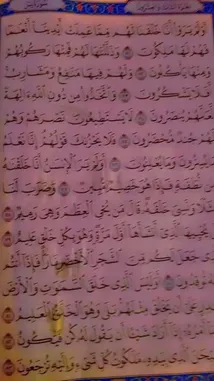 سورة يس
أَوَلَمْ يَرَوْا أَنَّا خَلَقْنَا لَهُم مِّمَّا عَمِلَتْ أَيْدِينَا أَنْعَٰمًا
فَهُمْ لَهَا مَٰلِكُونَ وَذَلَّلْنَٰهَا لَهُمْ فَمِنْهَا رَكُوبُهُمْ
وَمِنْهَا يَأْكُلُونَ وَلَهُمْ فِيهَا مَنَٰفِعُ وَمَشَارِبُ
أَفَلَا يَشْكُرُونَ وَاتَّخَذُوا مِن دُونِ اللَّهِ ءَالِهَةً
لَّعَلَّهُمْ يُنصَرُونَ لَا يَسْتَطِيعُونَ نَصْرَهُمْ وَهُمْ
لَهُمْ جُندٌ مُّحْضَرُونَ فَلَا يَحْزُنكَ قَوْلُهُمْ إِنَّا نَعْلَمُ
يُسِرُّونَ وَمَا يُعْلِنُونَ أَوَلَمْ يَرَ الْإِنسَٰنُ أَنَّا خَلَقْنَٰهُ
مِن نُّطْفَةٍ فَإِذَا هُوَ خَصِيمٌ مُّبِينٌ وَضَرَبَ لَنَا
مَثَلًا وَنَسِيَ خَلْقَهُ قَالَ مَن يُحْيِ الْعِظَٰمَ وَهِيَ رَمِيمٌ
يُحْيِيهَا الَّذِي أَنشَأَهَا أَوَّلَ مَرَّةٍ وَهُوَ بِكُلِّ خَلْقٍ عَلِيمٌ
الَّذِي جَعَلَ لَكُم مِّنَ الشَّجَرِ الْأَخْضَرِ نَارًا فَإِذَا أَنتُم
تُوقِدُونَ أَوَلَيْسَ الَّذِي خَلَقَ السَّمَٰوَٰتِ وَالْأَرْضَ
بِقَٰدِرٍ عَلَىٰ أَن يَخْلُقَ مِثْلَهُم بَلَىٰ وَهُوَ الْخَلَّٰقُ الْعَلِيمُ
أَمْرُهُ إِذَا أَرَادَ شَيْئًا أَن يَقُولَ لَهُ كُن فَيَكُونُ
فَسُبْحَٰنَ الَّذِي بِيَدِهِ مَلَكُوتُ كُلِّ شَيْءٍ وَإِلَيْهِ تُرْجَعُونَ